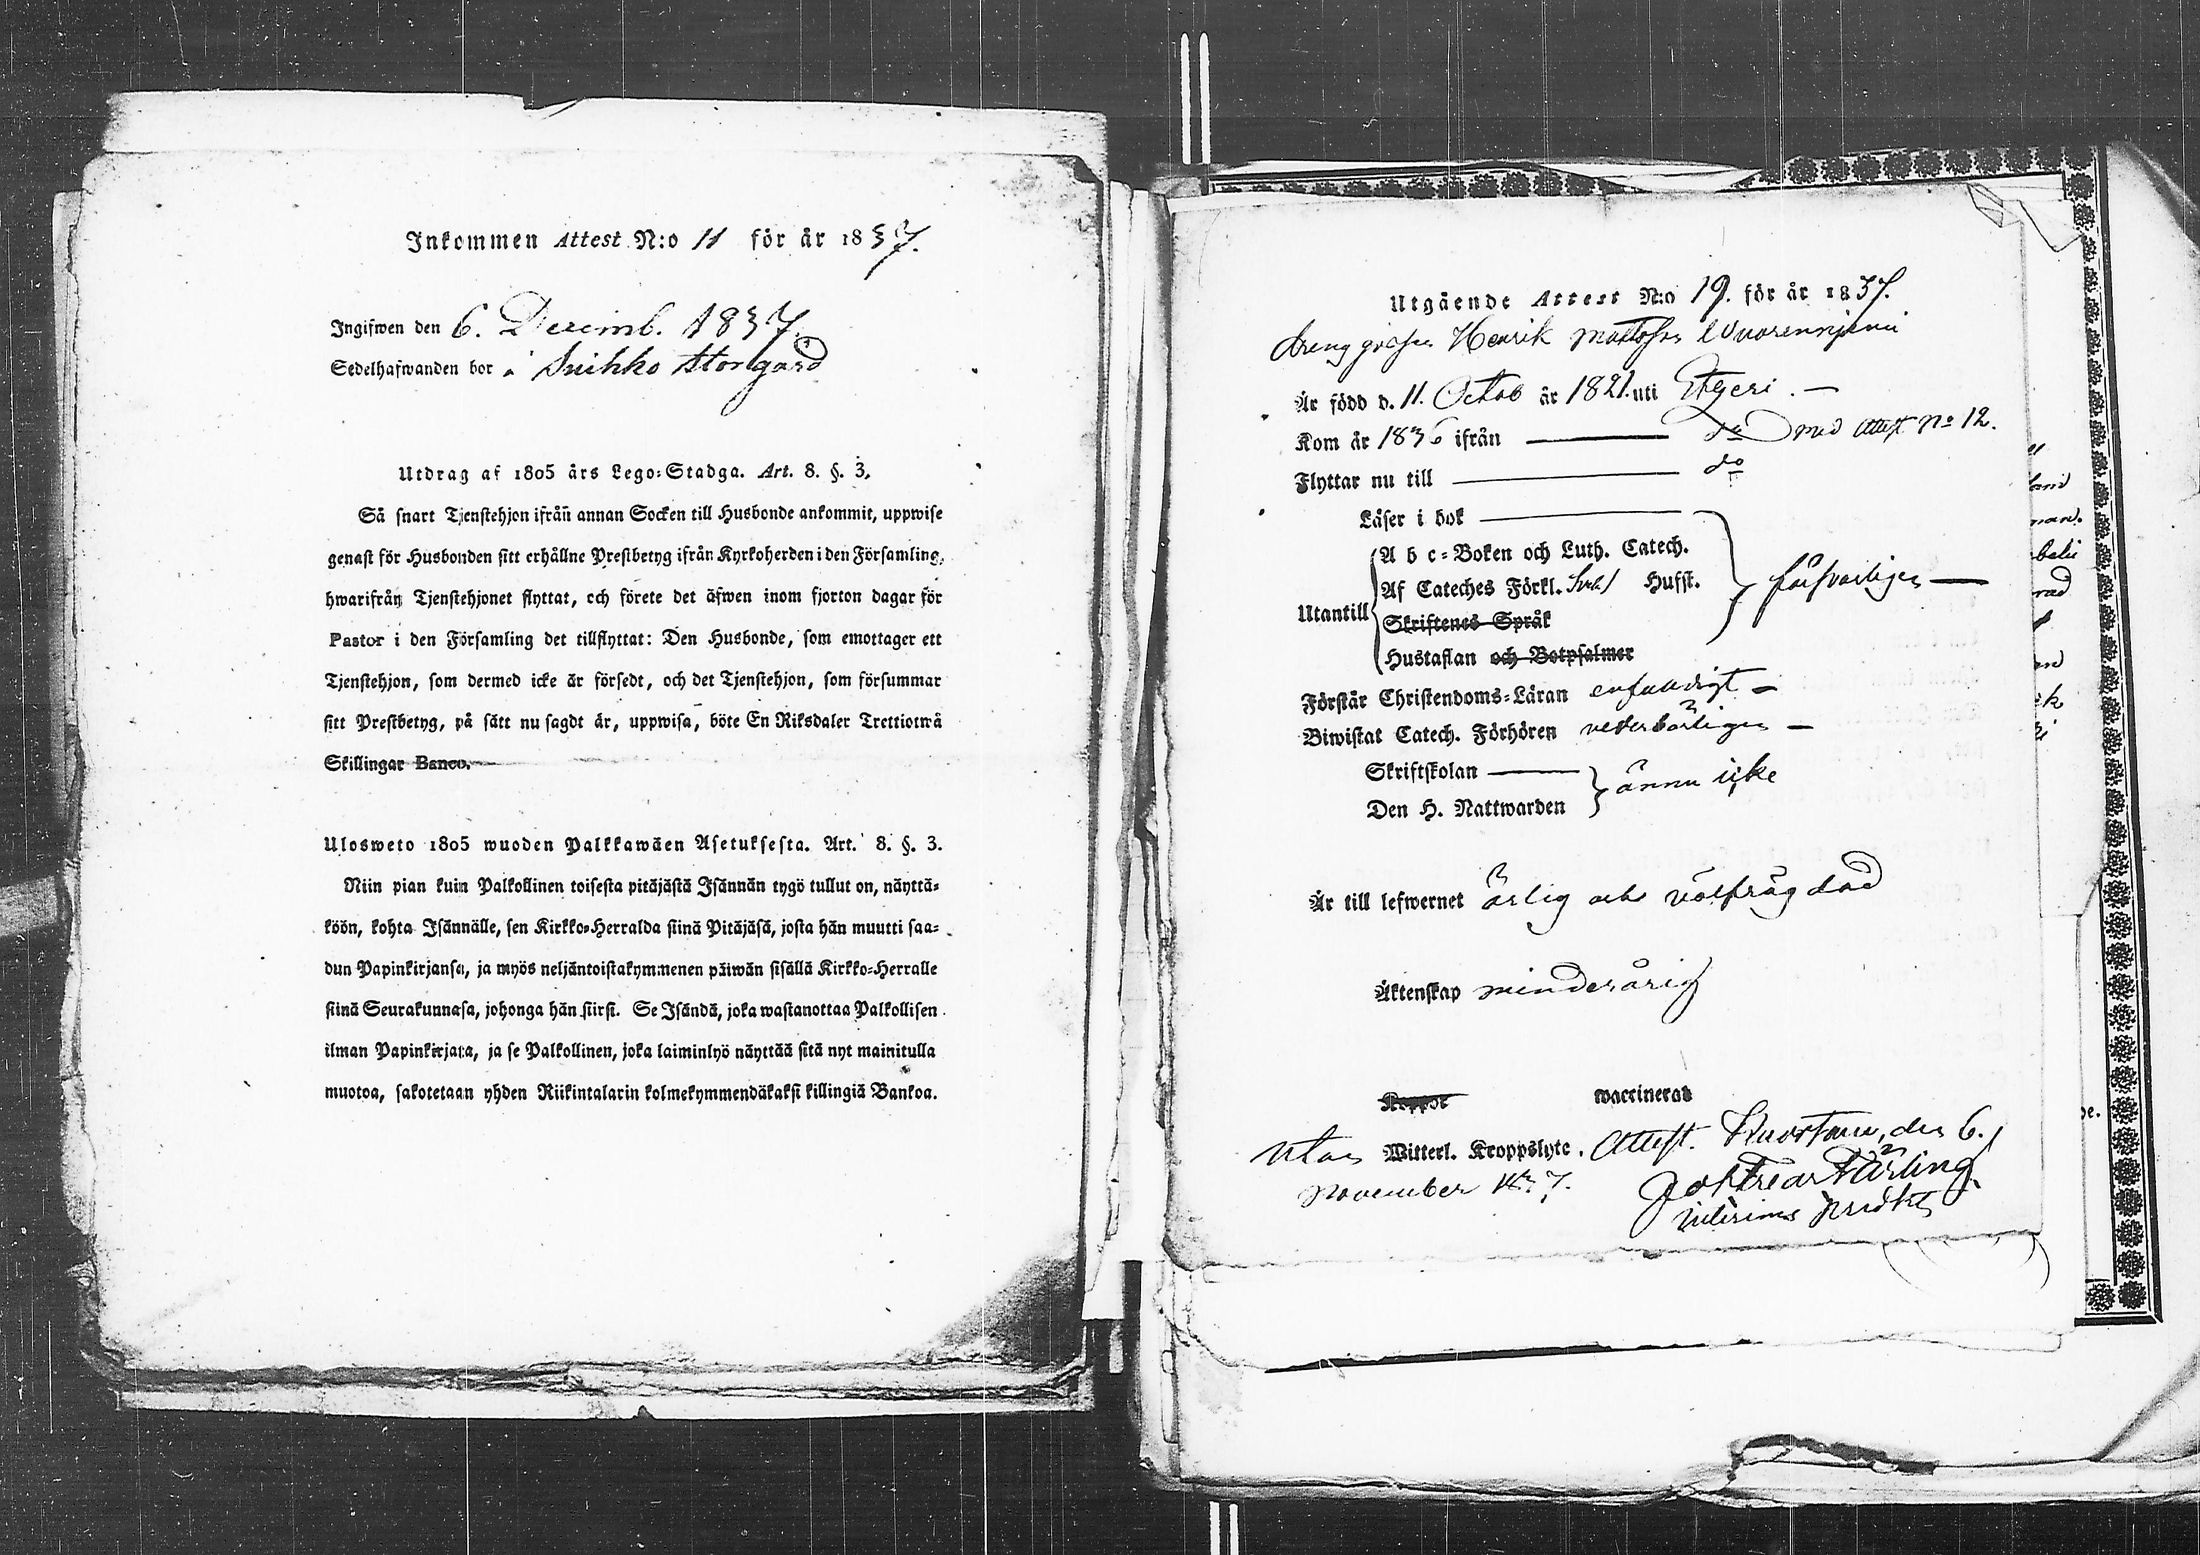 Inkommen Attest N:o 11 för år 1837.
Ingifwen den 6. Decemb. 1837.
Sedelhafwanden bor å Suihko Storgård
Utdrag af 1805 års Lego-Stadga. Art. 8. §. 3.
Så snart Tjenstehjon ifrån annan Socken till Husbonde ankommit, uppwise
genast för Husbonden sitt erhållne Prestbetyg ifrån Kyrkoherden i den Församling,
hwarifrån Tjenstehjonet flyttat, och förete det äfwen inom fjorton dagar för
Pastor i den Församling det tillflyttat: Den Husbonde, som emottager ett
Tjenstehjon, som dermed icke är försedt, och det Tjenstehjon, som försummar
sitt Prestbetyg, på sätt nu sagdt är, uppwisa, böte En Riksdaler Trettiotwå
Skillingar Banco.
Ulosweto 1805 wuoden Palkkawäen Asetuksesta. Art. 8. §. 3.
Niin pian kuin Palkollinen toisesta pitäjästä Isännän tygö tullut on, näyttä-
köön, kohta Isännälle, sen Kirkko-Herralda siinä Pitäjäsä, josta hän muutti saa-
dun Papinkirjansa, ja myös neljäntoistakymmenen päiwän sisällä Kirkko-Herralle
siinä Seurakunnasa, johonga hän siirsi. Se Isändä, joka wastanottaa Palkollisen
ilman Papinkirjata, ja se Palkollinen, joka laiminlyö näyttää sitä nyt mainitulla
muotoa, sakotetaan yhden Riikintalarin kolmekymmendäkaksi killingiä Bankoa.
Utgående Attest N:o 19. för år 1837.
Drenggossen Henrik Mattsson Wuorenniemi
Är född d. 11. Octob år 1821. uti Etseri. —
Kom år 1836 ifrån — do med Attest No 12.
Flyttar nu till — do
Läser i bok —
A b c-Boken och Luth. Catech.
Af Cateches Förkl. Hufst. försvarligen —
Utantill
Skriftenes Språk
Hustaflan och Botpsalmer
Förstår Christendoms-Läran enfaldigt —
Biwistat Catech. Förhören vederbörligen —
Skriftskolan —
ännu icke
Den H. Nattwarden
Är till lefwernet ärlig och välfrägdad
Äktenskap minderårig
Koppor waccinerad
Utan Witterl. Kroppslyte. Attest. Kuortane, den 6.
November 1837.
interims predikt
land
man.
rad
ik